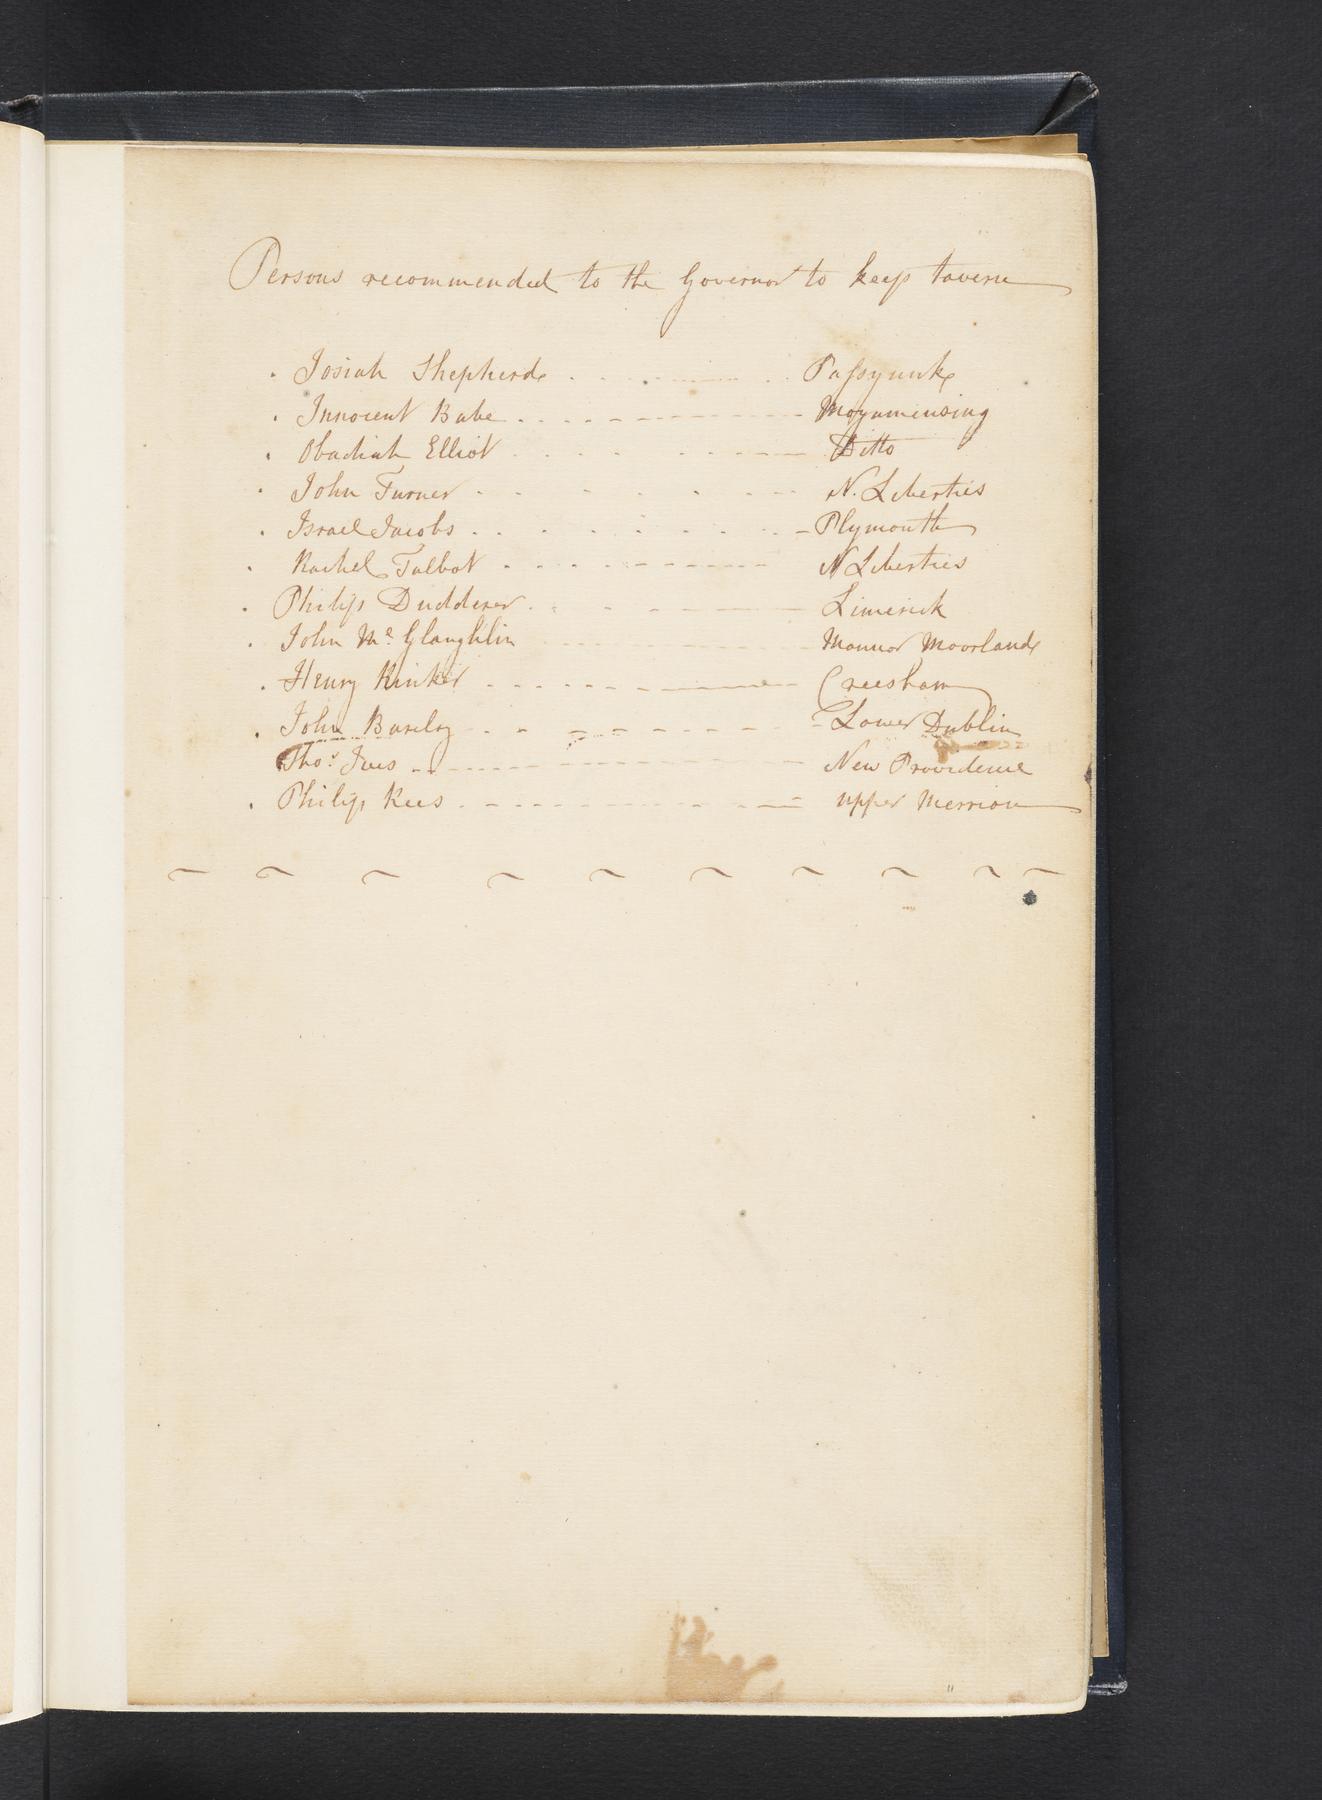 Persons recommended to the Governor to keep tavern
Josiah Shepherd Passyunk
Innocent Babe Moyamensing
Obadiah Elliot Ditto
John Turner N. Liberties
Israel Jacobs Plymouth
Rachel Talbot N Liberties
Philip Dudderer Limerick
John Mc Glaughlin Mannor Moorland
Henry Rinker Creesham
John Barcly Lower Dublin
Thos. Ives New Providence
Philip Rees upper Merrion